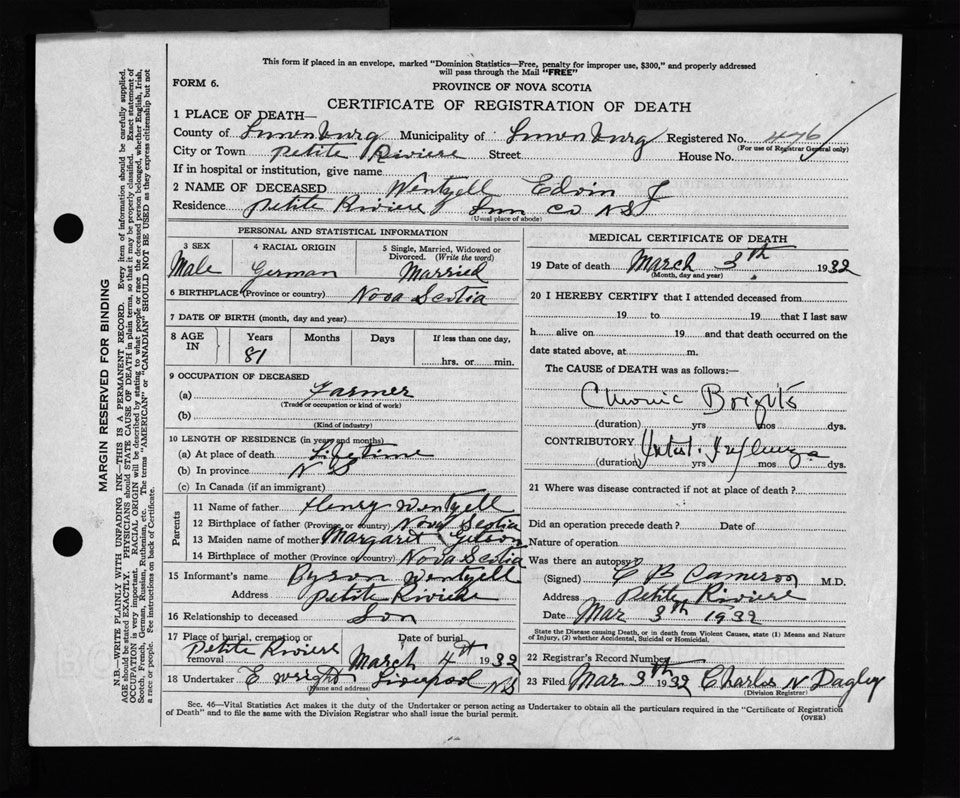 This form if placed in an envelope, marked "Dominion Statistics—Free, penalty for improper use, $300," and properly addressed
will pass through the Mail "FREE"
FORM 6.
PROVINCE OF NOVA SCOTIA
CERTIFICATE OF REGISTRATION OF DEATH
1 PLACE OF DEATH—
County of Lunenburg Municipality of Lunenburg Registered No. 476
(For use of Registrar General only)
City or Town Petite Riviere Street House No.
If in hospital or institution, give name
2 NAME OF DECEASED Wentzell Edwin J
Residence Petite Riviere Lun Co NS
(Usual place of abode)
PERSONAL AND STATISTICAL INFORMATION
3 SEX 4 RACIAL ORIGIN 5 Single, Married, Widowed or
Divorced. (Write the word)
Male German Married
6 BIRTHPLACE (Province or country) Nova Scotia
7 DATE OF BIRTH (month, day and year)
8 AGE IN Years Months Days If less than one day,
81 hrs. or min.
9 OCCUPATION OF DECEASED
(a) Farmer
(Trade or occupation or kind of work)
(b)
(Kind of industry)
10 LENGTH OF RESIDENCE (in years and months)
(a) At place of death Lifetime
(b) In province N S
(c) In Canada (if an immigrant)
Parents
11 Name of father Henry Wentzell
12 Birthplace of father (Province or country) Nova Scotia
13 Maiden name of mother Margaret
14 Birthplace of mother (Province or country) Nova Scotia
15 Informant's name Byron Wentzell
Address Petite Riviere
16 Relationship to deceased Son
17 Place of burial, cremation or removal Date of burial
Petite Riviere March 4th 1932
18 Undertaker E Wright Liverpool NS
(Name and address)
MEDICAL CERTIFICATE OF DEATH
19 Date of death March 3th 1932
(Month, day and year)
20 I HEREBY CERTIFY that I attended deceased from
19 to 19 that I last saw
h alive on 19 and that death occurred on
date stated above, at m.
The CAUSE of DEATH was as follows:—
Chronic Brights
(duration) yrs mos dys.
CONTRIBUTORY Influenza
(duration) yrs mos dys.
21 Where was disease contracted if not at place of death?
Did an operation precede death? Date of
Nature of operation
Was there an autopsy
(Signed) C B Cameron M.D.
Address Petite Riviere
Date Mar 3th 1932
State the Disease causing Death, or in death from Violent Causes, state (1) Means and Nature
of Injury, (2) whether Accidental, Suicidal or Homicidal.
22 Registrar's Record Number
23 Filed Mar 3th 1932 Charles N Dagley
(Division Registrar)
Sec. 46—Vital Statistics Act makes it the duty of the Undertaker or person acting as Undertaker to obtain all the particulars required in the "Certificate of Registration
of Death" and to file the same with the Division Registrar who shall issue the burial permit.
(OVER)
MARGIN RESERVED FOR BINDING
N.B.—WRITE PLAINLY WITH UNFADING INK—THIS IS A PERMANENT RECORD. Every item of information should be carefully supplied.
AGE should be stated EXACTLY. PHYSICIANS should STATE CAUSE OF DEATH in plain terms, so that it may be properly classified. Exact statement of
OCCUPATION is very important. RACIAL ORIGIN will be described by stating to what people or race the deceased person belonged, whether English, Irish,
Scotch, French, German, Russian, Ruthenian, etc. The terms "AMERICAN" or "CANADIAN" SHOULD NOT BE USED as they express citizenship but not
a race or people. See instructions on back of Certificate.